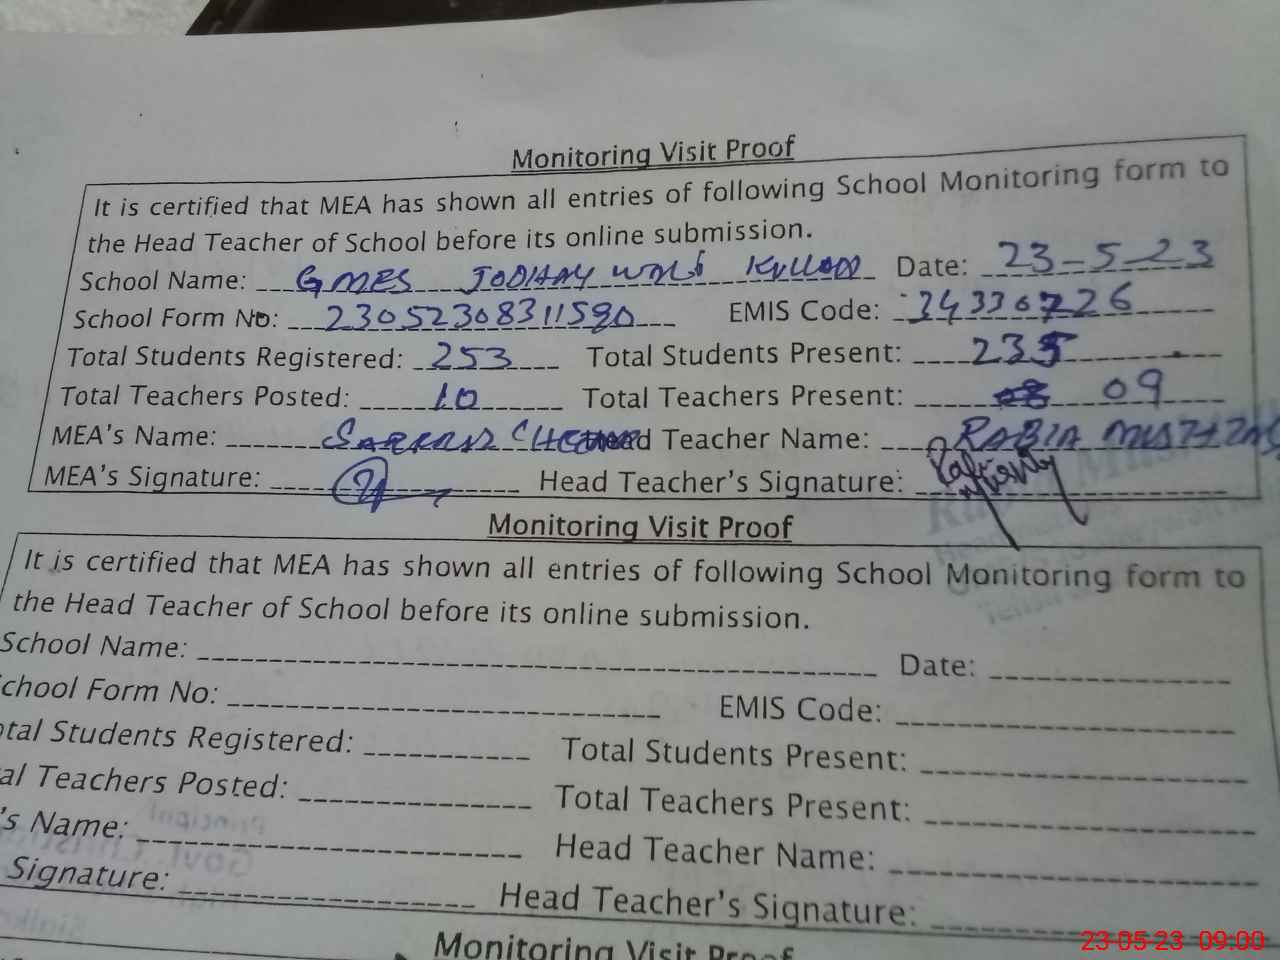 Monitoring Visit Proof
It is certified that MEA has shown all entries of following School Monitoring form to
the Head Teacher of School before its online submission.
School Name: GMES JODHAY Date: 23-5-23
School Form No: 23052308311590 EMIS Code: 34330726
Total Students Registered: 253 Total Students Present: 235
Total Teachers Posted: 10 Total Teachers Present: 09
MEA's Name: Head Teacher Name: RABIA
MEA's Signature: Head Teacher's Signature:
Monitoring Visit Proof
It is certified that MEA has shown all entries of following School Monitoring form to
the Head Teacher of School before its online submission.
School Name: Date:
chool Form No: EMIS Code:
otal Students Registered: Total Students Present:
al Teachers Posted: Total Teachers Present:
's Name: Head Teacher Name:
Signature: Head Teacher's Signature:
Monitoring Visit Proof
23-05-23 09:00